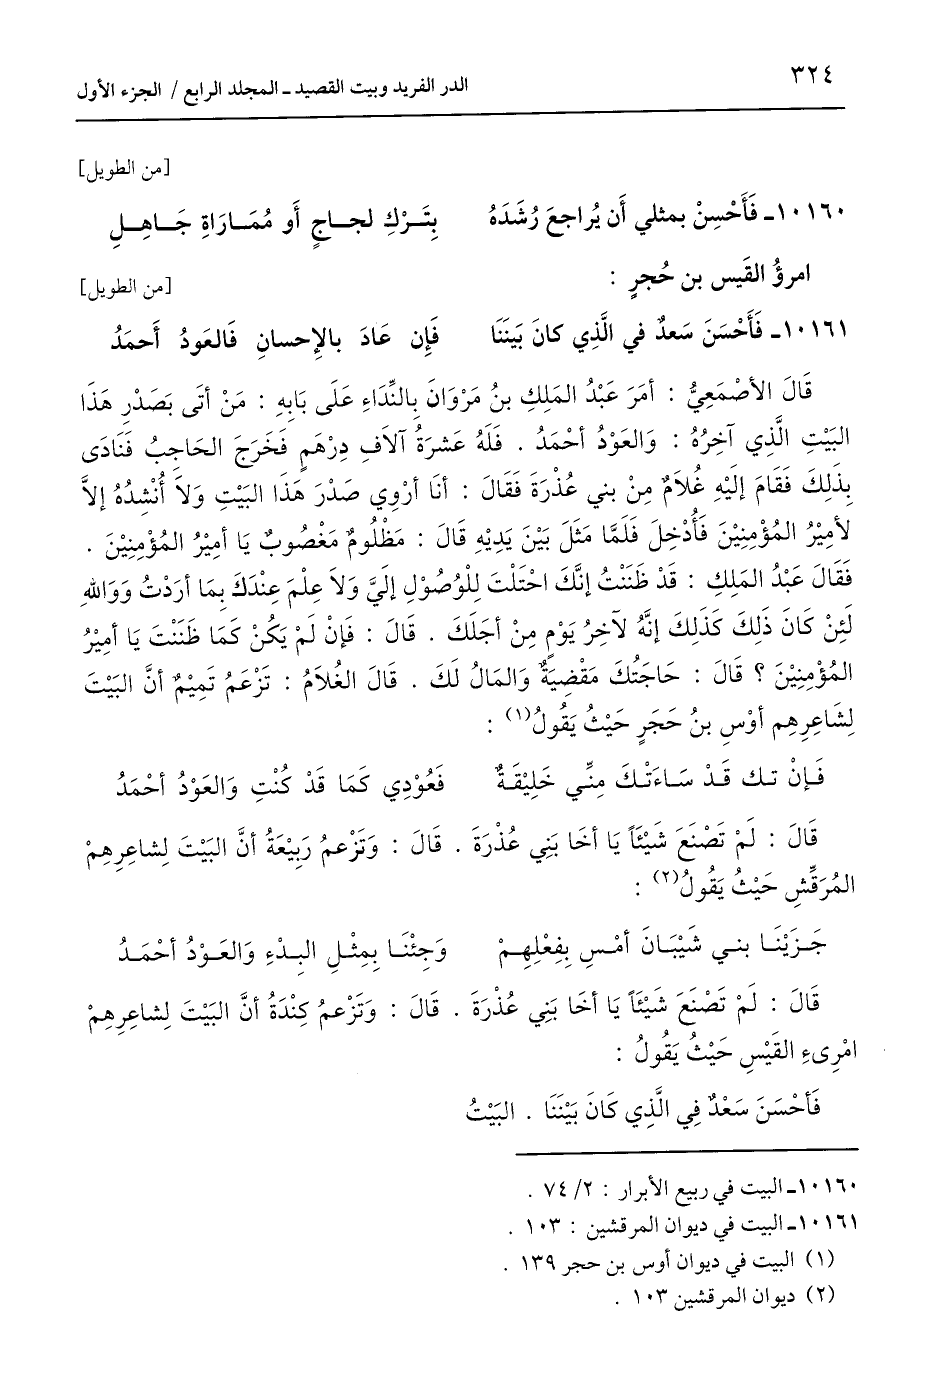 ٣٢٤ الدر الفريد وبيت القصيد - المجلد الرابع / الجزء الأول
[من الطويل]
١٠١٦٠- فَأَحْسِنْ بمثلي أَن يُراجعَ رُشدَهُ بِتَرْكِ لجاجٍ أَو مُمَارَاةِ جَاهِلِ
امرؤُ القَيس بن حُجرٍ :
[من الطويل]
١٠١٦١- فَأَحْسَنَ سَعدٌ في الَّذِي كانَ بَيَننَا فَإِن عَادَ بالإِحسانِ فَالعَودُ أَحمَدُ
قَالَ الأَصْمَعِيُّ : أمَرَ عَبْدُ المَلِكِ بنُ مَرْوَانَ بِالنِّدَاءِ عَلَى بَابِهِ : مَنْ أتَى بَصَدْرِ هَذَا
البَيْتِ الَّذِي آخِرُهُ : وَالعَوْدُ أحْمَدُ . فَلَهُ عَشرَةُ آلآفِ دِرْهَمٍ فَخَرَجَ الحَاجِبُ فَنَادَى
بِذَلِكَ فَقَامَ إلَيْهِ غُلاَمٌ مِنْ بني عُذْرَةَ فَقَالَ : أنَا أرْوِي صَدْرَ هَذَا البَيْتِ وَلاَ أُنْشِدُهُ إلاَّ
لأمِيْرُ المُؤْمِنِيْنَ فَأُدْخِلَ فَلَمَّا مَثَلَ بَيْنَ يَدِيْهِ قَالَ : مَظْلُومٌ مَغْصُوبٌ يَا أمِيْرُ المُؤْمِنِيْنَ .
فَقَالَ عَبْدُ المَلِكِ : قَدْ ظَنَنْتُ إنَّكَ احْتَلْتَ لِلْوُصُوْلِ إلَيَّ وَلاَ عِلْمَ عِنْدَكَ بِمَا أرَدْتُ وَوَاللهِ
لَئِنْ كَانَ ذَلِكَ كَذَلِكَ إنَّهُ لآخِرُ يَوْمٍ مِنْ أجَلَكَ . قَالَ : فَإنْ لَمْ يَكُنْ كَمَا ظَنَنْتَ يَا أمِيْرُ
المُؤْمِنِيْنَ ؟ قَالَ : حَاجَتُكَ مَقْضِيَةٌ وَالمَالُ لَكَ . قَالَ الغُلاَمُ : تَزْعَمُ تَمِيْمٌ أنَّ البَيْتَ
لِشَاعِرِهِم أوْسِ بنُ حَجَرٍ حَيْثُ يَقُولُ(١) :
فَإنْ تك قَدْ سَاءَتْكَ مِنِّي خَلِيْقَةٌ فَعُوْدِي كَمَا قَدْ كُنْتِ وَالعَوْدُ أحْمَدُ
قَالَ : لَمْ تَصْنَعَ شَيْئَاً يَا أخَا بَنِي عُذْرَةَ . قَالَ : وَتَزْعمُ رَبِيْعَةُ أنَّ البَيْتَ لِشاعِرِهِمْ
المُرَقِّشِ حَيْثُ يَقُولُ(٢) :
جَزَيْنَا بني شَيْبَانَ أمْسِ بِفِعْلِهِمْ وَجِئْنَا بِمِثْلِ البِدْءِ وَالعَوْدُ أحْمَدُ
قَالَ : لَمْ تَصْنَعَ شَيْئَاً يَا أخَا بَنِي عُذْرَةَ . قَالَ : وَتَزْعمُ كِنْدَةُ أنَّ البَيْتَ لِشاعِرِهِمْ
امْرِىءِ القَيْسِ حَيْثُ يَقُولُ :
فَأحْسَنَ سَعْدٌ فِي الَّذِي كَانَ بَيْنَنَا . البَيْتُ
١٠١٦٠- البيت في ربيع الأبرار : ٢/ ٧٤ .
١٠١٦١- البيت في ديوان المرقشين : ١٠٣ .
(١) البيت في ديوان أوس بن حجر ١٣٩ .
(٢) ديوان المرقشين ١٠٣ .